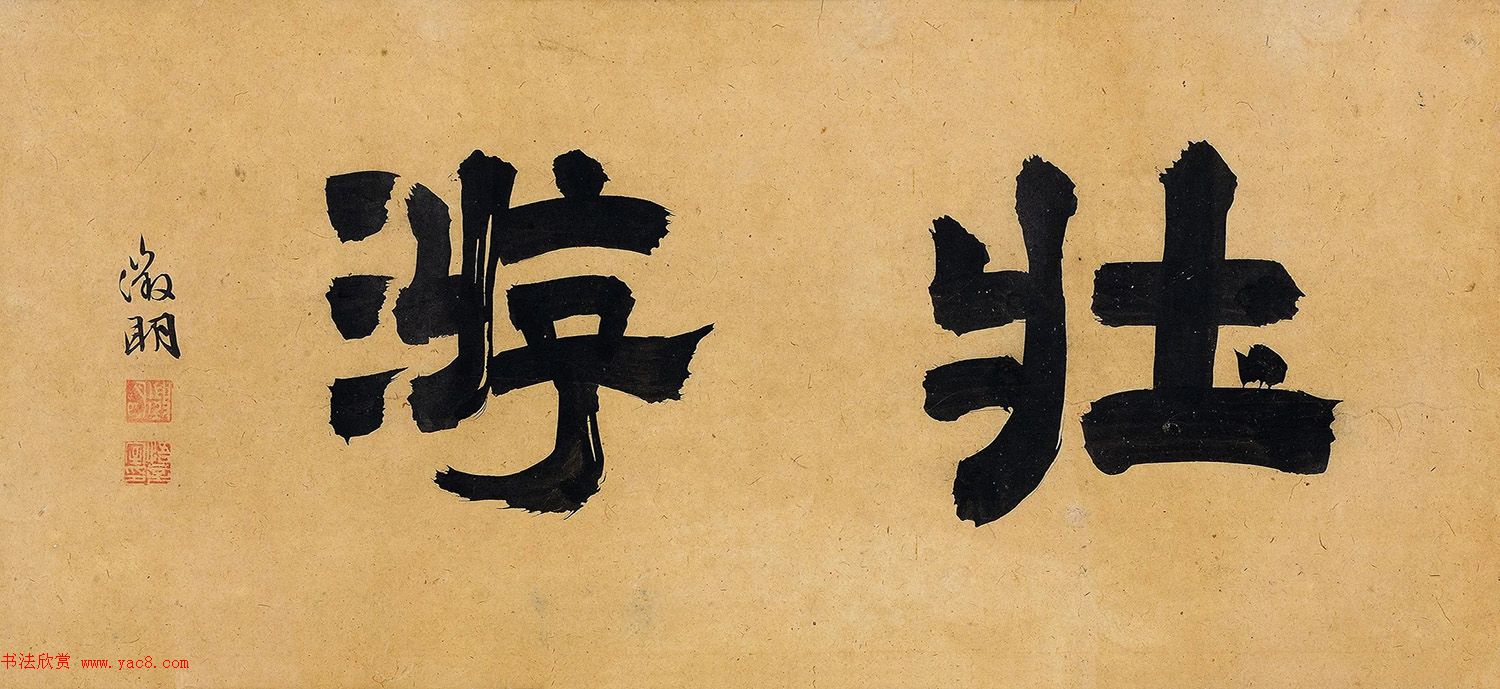 壮游
徵明
书法欣赏 www.yac8.com